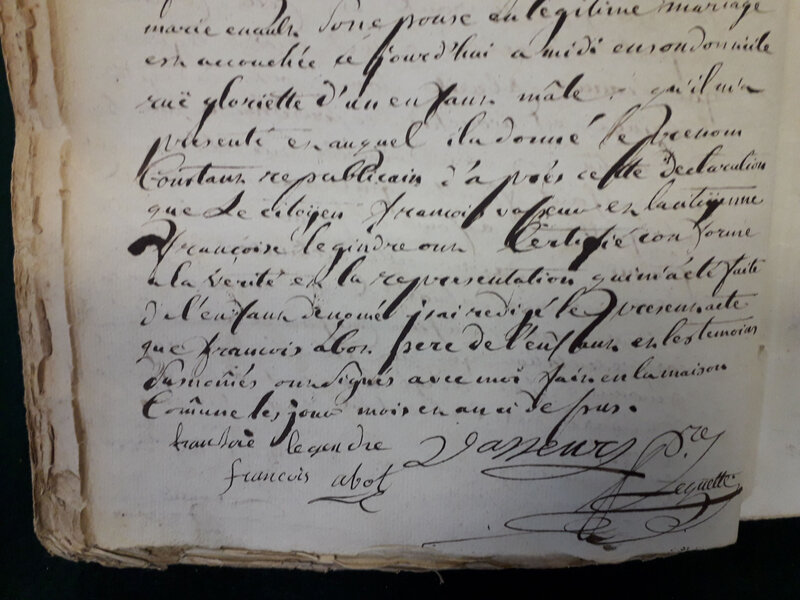 marie enault son epouse en legitime mariage
est accouchée ce jourd'hui a midi en son domicile
ruë gloriette d'un enfant mâle qu'il m'a
presenté et auquel il a donné le prenom
Constant republicain d'après cette Declaration
que Le citoyen françois vasseur et la citoÿenne
françoise legendre ont Certifié conforme
a la verité et la representation qui m'a été faite
de l'enfant denomé j'ai redigé le present acte
que françois abot pere de l'enfant et les temoins
susnomés ont signés avec moi fait en la maison
Comûne les jour mois et an ci dessus.
franšoise legendre Vasseur pre
françois abot Lequette